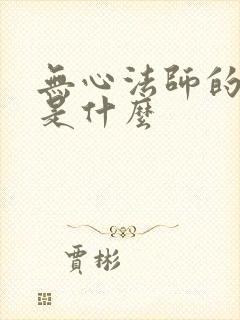 無心法師的
是什麼
賈彬